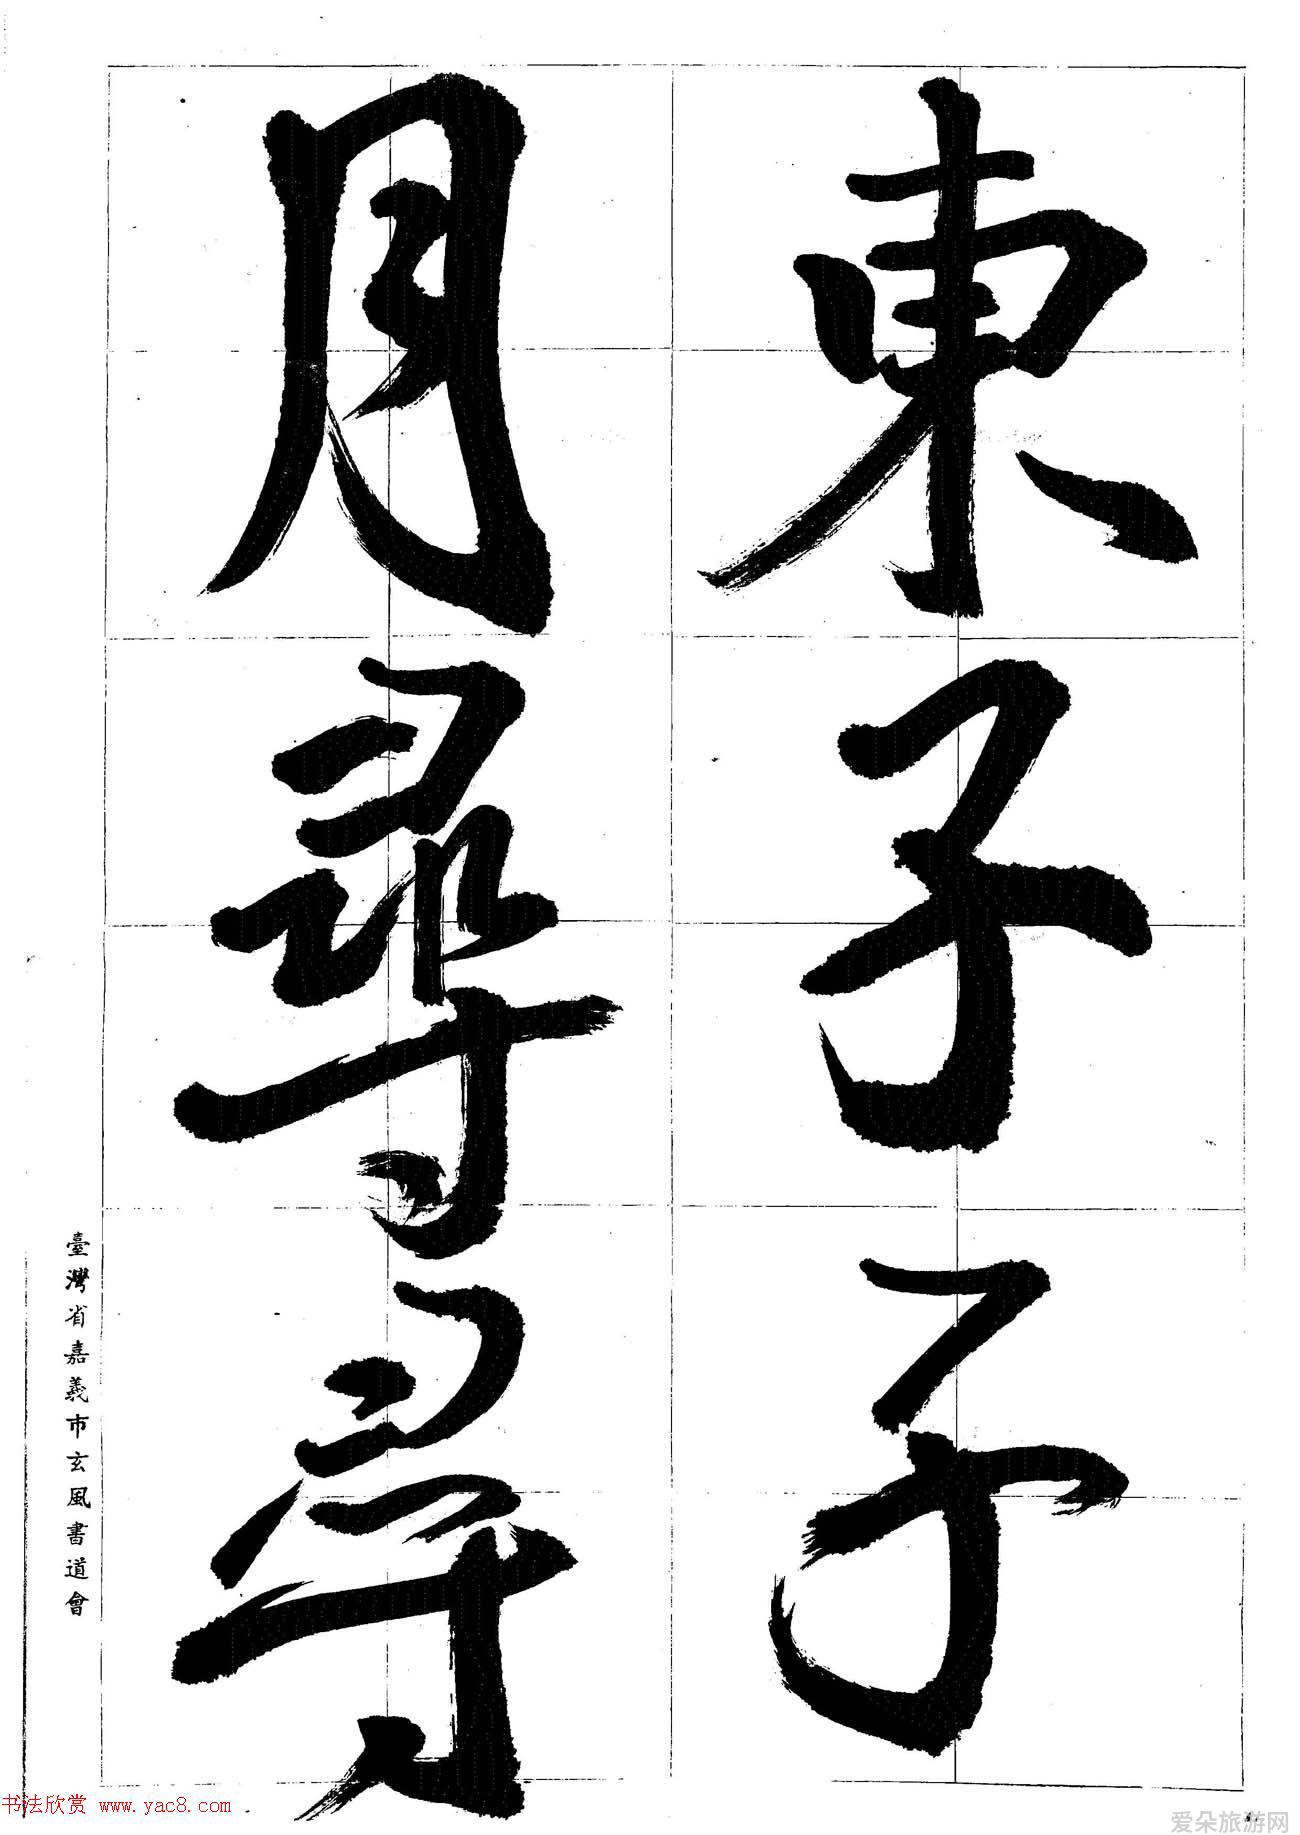 東子子
月尋尋
臺灣省嘉義市玄風書道會
书法欣赏 www.yac8.com
爱朵旅游网